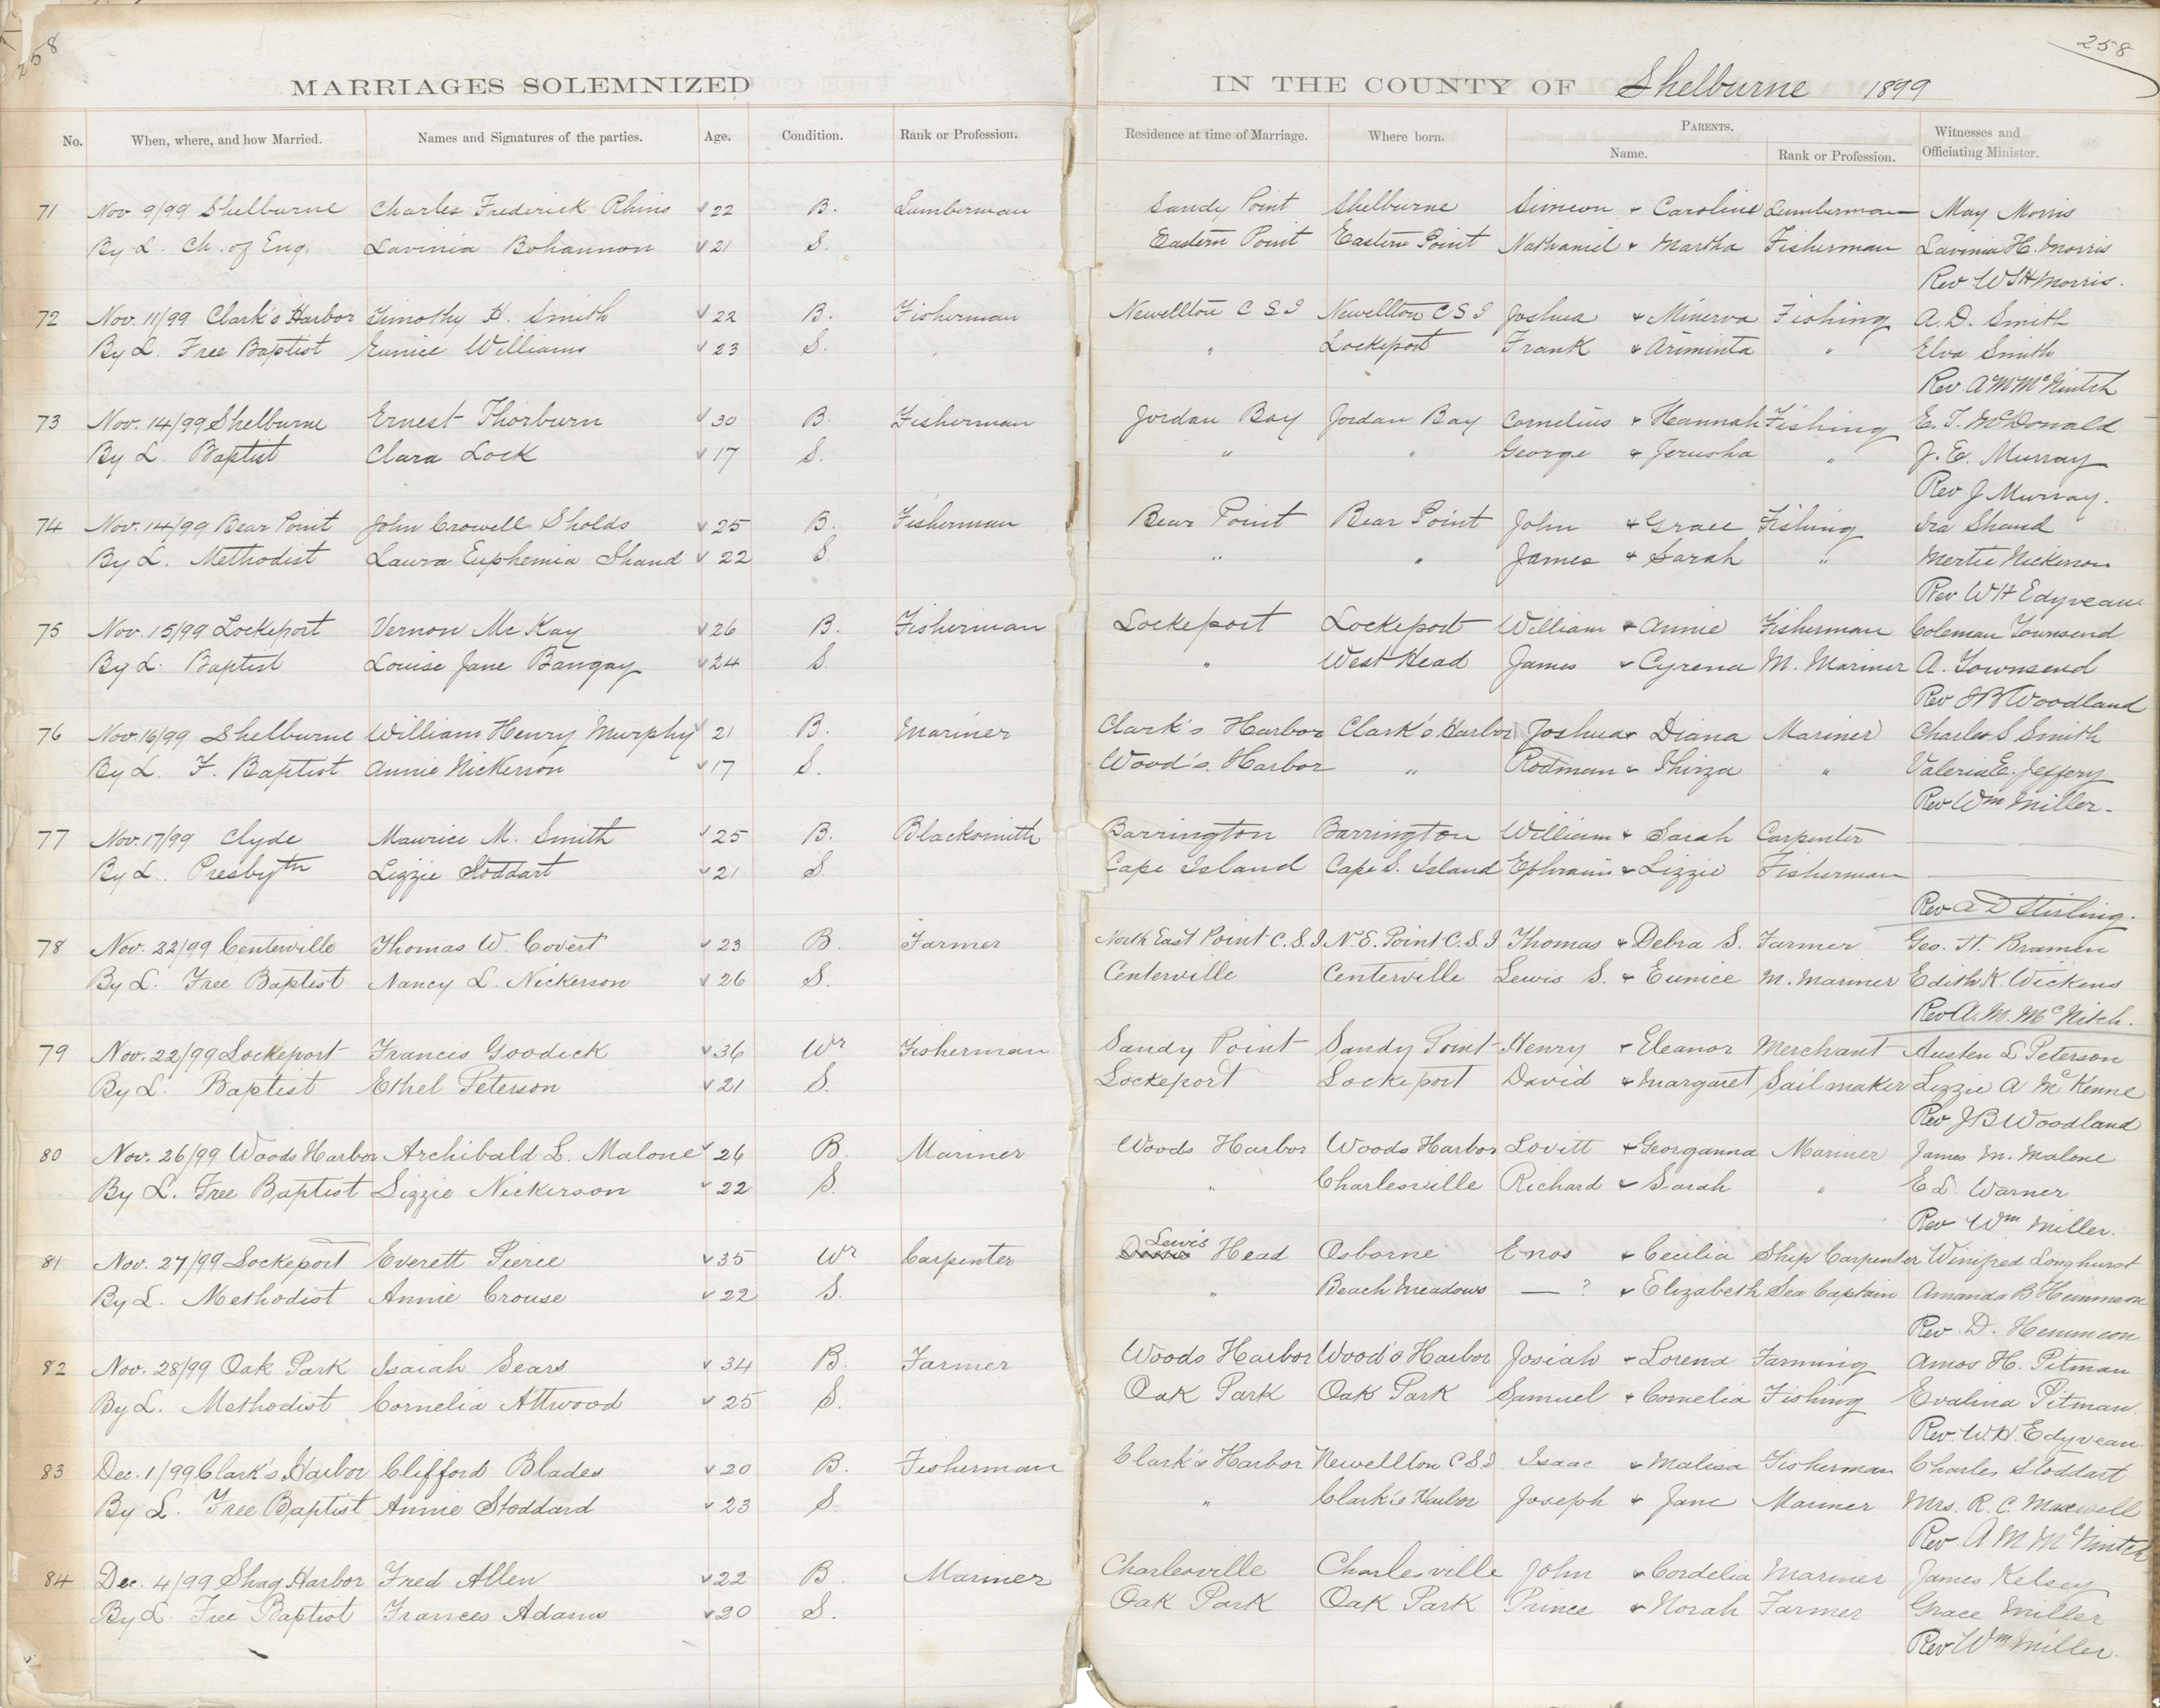 258
258
MARRIAGES SOLEMNIZED IN THE COUNTY OF Shelburne 1899
No. When, where, and how Married. Names and Signatures of the parties. Age. Condition. Rank or Profession. Residence at time of Marriage. Where born. PARENTS. Name. Rank or Profession. Witnesses and Officiating Minister.
71 Nov 9/99 Shelburne Charles Frederick Rhino 22 B. Lumberman Sandy Point Shelburne Simeon & Caroline Lumberman May Morris
By L. Ch. of Eng. Lavinia Bohannon 21 S. Eastern Point Eastern Point Nathaniel & Martha Fisherman Lavinia H. Morris
Rev W S H Morris.
72 Nov. 11/99 Clark's Harbor Timothy H. Smith 22 B. Fisherman Newellton C S I Newellton C S I Joshua & Minerva Fishing A. D. Smith
By L. Free Baptist Eunice Williams 23 S. " Lockeport Frank & Ariminta " Elva Smith
Rev A M McNintch
73 Nov. 14/99 Shelburne Ernest Thorburn 30 B. Fisherman Jordan Bay Jordan Bay Cornelius & Hannah Fishing E. T. McDonald
By L. Baptist Clara Lock 17 S. " " George & Jerusha " J. E. Murray
Rev J Murray.
74 Nov. 14/99 Bear Point John Crowell Sholds 25 B. Fisherman Bear Point Bear Point John & Grace Fishing Ira Shand
By L. Methodist Laura Euphemia Shand 22 S. " " James & Sarah " Mertie Nickerson
Rev W H Edyvean.
75 Nov. 15/99 Lockeport Vernon Mc Kay 26 B. Fisherman Lockeport Lockeport William & Annie Fisherman Coleman Townsend
By L. Baptist Louise Jane Bangay 24 S. " West Head James & Cyrena M. Mariner A. Townsend
Rev J B Woodland
76 Nov. 16/99 Shelburne William Henry Murphy 21 B. Mariner Clark's Harbor Clark's Harbor Joshua & Diana Mariner Charles S Smith
By L. F. Baptist Annie Nickerson 17 S. Wood's Harbor " Rodman & Thirza " Valeria E. Jeffery
Rev Wm Miller.
77 Nov. 17/99 Clyde Maurice M. Smith 25 B. Blacksmith Barrington Barrington William & Sarah Carpenter
By L. Presbytn Lizzie Stoddart 21 S. Cape Island Cape S. Island Ephraim & Lizzie Fisherman
Rev A D Stirling.
78 Nov. 22/99 Centerville Thomas W. Covert 23 B. Farmer North East Point C. S. I N. E. Point C. S. I Thomas & Debra S. Farmer Geo. H. Bramen
By L. Free Baptist Nancy L. Nickerson 26 S. Centerville Centerville Lewis S. & Eunice M. Mariner Edith K. Wickens
Rev A. M. McNitch.
79 Nov. 22/99 Lockeport Francis Goodick 36 Wr Fisherman Sandy Point Sandy Point Henry & Eleanor Merchant Austen L Peterson
By L. Baptist Ethel Peterson 21 S. Lockeport Lockeport David & Margaret Sailmaker Lizzie A McKenne
Rev J B Woodland
80 Nov. 26/99 Woods Harbor Archibald L. Malone 26 B. Mariner Woods Harbor Woods Harbor Lovitt & Georganna Mariner James M. Malone
By L. Free Baptist Lizzie Nickerson 22 S. " Charlesville Richard & Sarah " E L. Warner
Rev Wm Miller.
81 Nov. 27/99 Lockeport Everett Pierce 35 Wr Carpenter Lewis Head Osborne Enos & Cecilia Ship Carpenter Winifred Longhurst
By L. Methodist Annie Crouse 22 S. " Beach Meadows — ? & Elizabeth Sea Captain Amanda B Hemmeon
Rev. D. Hemmeon
82 Nov. 28/99 Oak Park Isaiah Sears 34 B. Farmer Woods Harbor Wood's Harbor Josiah & Lorena Farming Amos H. Pitman
By L. Methodist Cornelia Attwood 25 S. Oak Park Oak Park Samuel & Cornelia Fishing Evalina Pitman.
Rev. W H. Edyvean.
83 Dec. 1/99 Clark's Harbor Clifford Blades 20 B. Fisherman Clark's Harbor Newellton C S I Isaac & Malisa Fisherman Charles Stoddart
By L. Free Baptist Annie Stoddard 23 S. " Clark's Harbor Joseph & Jane Mariner Mrs. R. C. Maxwell
Rev. A M McNintch
84 Dec. 4/99 Shag Harbor Fred Allen 22 B. Mariner Charlesville Charlesville John & Cordelia Mariner James Kelsey
By L. Free Baptist Frances Adams 20 S. Oak Park Oak Park Prince & Norah Farmer Grace Miller
Rev Wm Miller.